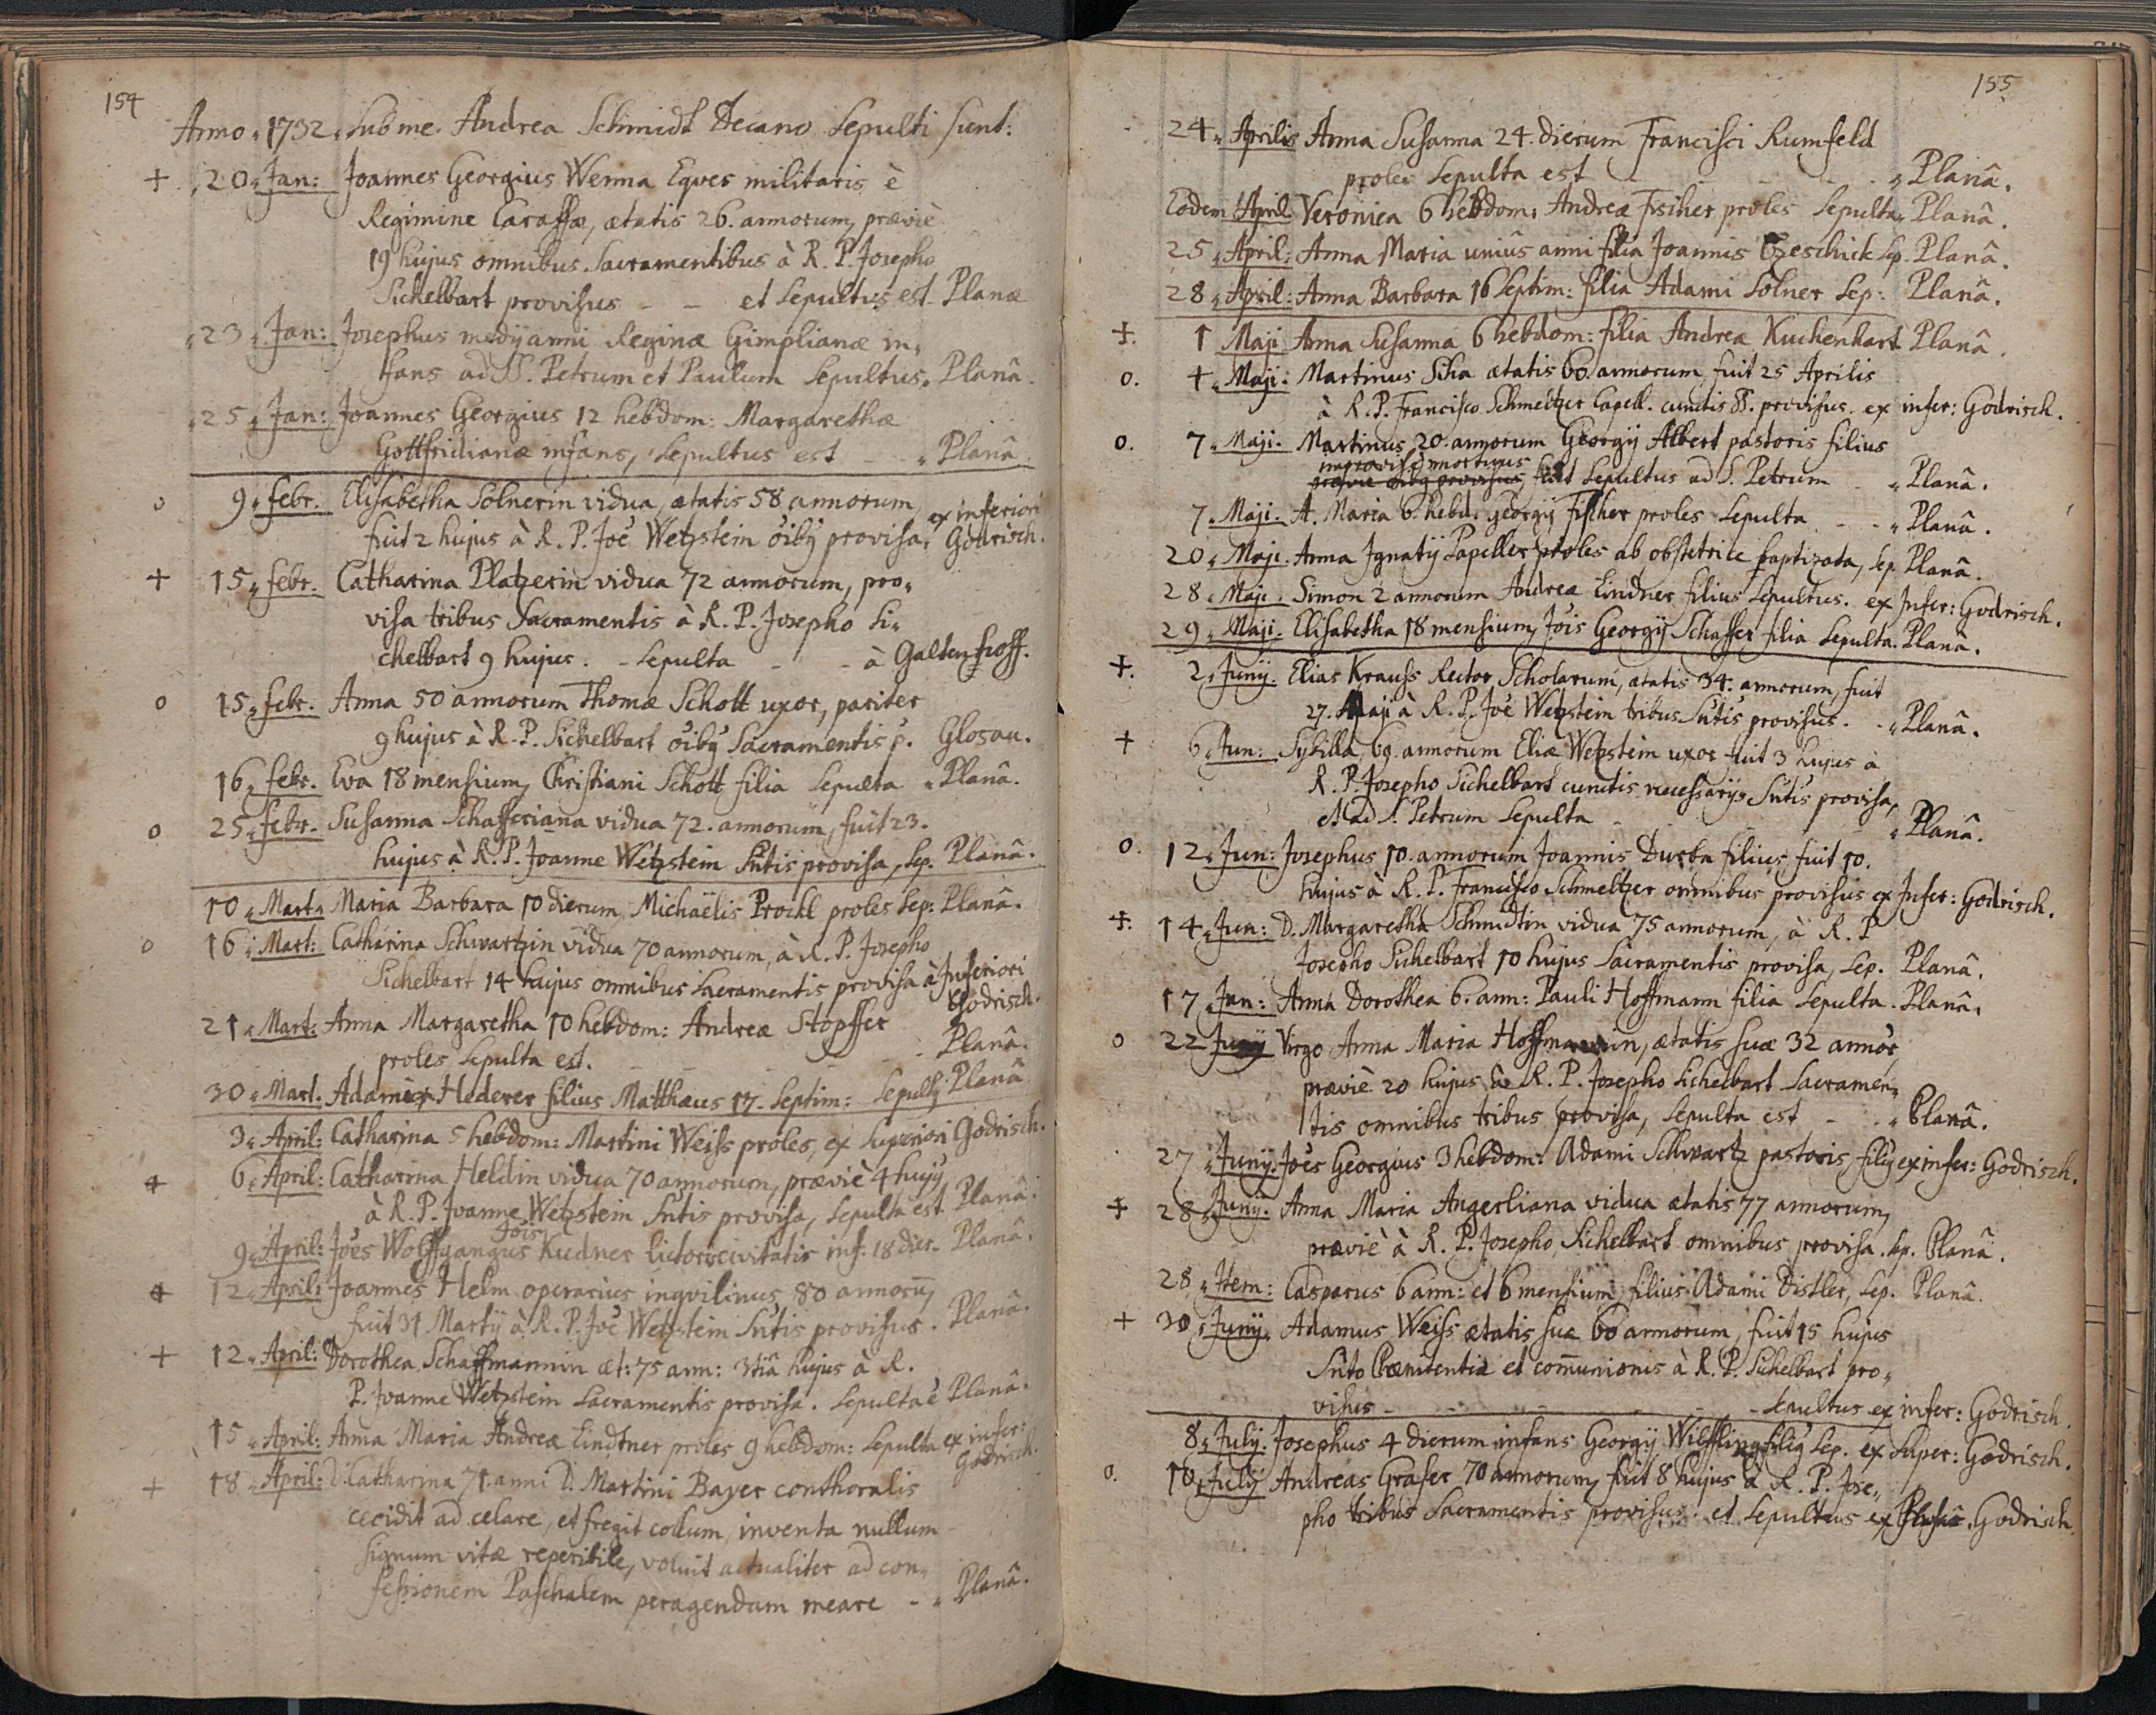 154
Anno 1732 sub me Andrea Schmidt Decano Sepulti sunt:
+ 20 Jan: Joannes Georgius Wenna Eqves militaris è
Regimine Caraffæ, ætatis 26. annorum, præviè
19 hujus omnibus Sacramentibus à R. P. Josepho
Sichelbart provisus - - et Sepultus est Planæ
23 Jan: Josephus medÿ anni Reginæ Gimplianæ in„
fans ad SS. Petrum et Paulum Sepultus. Planâ.
25 Jan: Joannes Georgius 12 hebdom: Margarethæ
Gottfridianæ infans, Sepultus est - Planâ.
o 9 febr. Elisabetha Solnerin vidua, ætatis 58 annorum ex inferiori
fuit 2 hujus à R. P. Joe Wetzstein oibÿ provisa, Godrisch.
+ 15 febr. Catharina Platzerin vidua 72 annorum, pro„
visa tribus Sacramentis à R. P. Josepho Si„
chelbart 9 hujus. - Sepulta - - à Galtenhoff.
o 15 febr. Anna 50 annorum Thomæ Schott uxor, pariter
9 hujus à R. P. Sichelbart oibÿ Sacramentis p. Glosau.
16 febr. Eva 18 mensium, Christiani Schott filia Sepulta Planâ.
o 25 febr. Susanna Schafferiana vidua 72. annorum, fuit 23.
hujus à R. P. Joanne Wetzstein Sntis provisa, Sep. Planâ.
10 Mart. Maria Barbara 10 dierum, Michaëlis Prockl proles Sep: Planâ.
o 16 Mart: Catharina Schwartzin vidua 70 annorum, à R. P. Josepho
Sichelbart 14 hujus omnibus Sacramentis provisa à Inferiori
Godrisch.
21 Mart: Anna Margaretha 10 hebdom: Andreæ Stopffer
proles Sepulta est. - - - Planâ.
30 Mart. Adami Hederer filius Matthæus 17. Septim: Sepultÿ Planâ
3 April: Catharina 5 hebdom: Martini Weiss proles, ex Superiori Godrisch.
+ 6 April: Catharina Heldin vidua 70 annorum, præviè 4 hujÿ
à R. P. Joanne Wetzstein Sntis provisa, Sepulta est Planâ.
Jois
9 April: Joes Wolffgangus Kudner lictoris civitatis inf: 18 dier. Planâ.
+ 12 April: Joannes Helm operarius inqvilinus 80 annorū
fuit 31 Martÿ à R. P. Joe Wetzstein Sntis provisus. Planâ.
+ 12 April: Dorothea Schaffmannin æt: 75 ann: 3tiâ hujus à R.
P. Joanne Wetzstein Sacramentis provisa. Sepulta ē Planâ.
15 April: Anna Maria Andreæ Lindtner proles 9 hebdom: Sepulta ex infer:
Godrisch.
+ 18 April: D. Catharina 71. anni D. Martini Bayer conthoralis
cecidit ad celare, et fregit collum, inventa nullum
signum vitæ reperibile, voluit actualiter ad con„
fessionem Paschalem peragendam meare - Planâ.
155
24 Aprilis Anna Susanna 24. dierum Francisci Rumfeld
proles Sepulta est - - - Planâ.
Eodem April. Veronica 6 hebdom: Andreæ Fischer proles Sepulta Planâ.
25 April: Anna Maria unius anni filia Joannis Czeschick Sep. Planâ.
28 April: Anna Barbara 16 Septim: filia Adami Solner Sep: Planâ.
+. 1 Maji Anna Susanna 6 hebdom: filia Andreæ Kuchenhart Planâ.
o. + Maji: Martinus Scha ætatis 60. annorum, fuit 25 Aprilis
à R. P. Francisco Schmeltzer Capell. cunctis SS. provisus. ex infer: Godrisch.
o. 7 Maji. Martinus 20. annorum Georgÿ Albert pastoris filius
improvisè mortuus
prævie oibÿ provisus, fuit Sepultus ad S. Petrum - Planâ.
7 Maji. A. Maria 6. hebd. Georgÿ Fischer proles Sepulta - - Planâ.
20 Maji. Anna Ignatÿ Papeller proles ab obstetrice baptizata, Sep. Planâ.
28 Maji. Simon 2 annorum Andreæ Lindner filius Sepultus. ex Infer: Godrisch.
29 Maji. Elisabetha 18 mensium, Jois Georgÿ Schaffer filia Sepulta. Planâ.
+. 2 Junÿ. Elias Krauss Rector Scholarum, ætatis 34. annorum, fuit
27. Maji à R. P. Joe Wetzstein tribus Sntis provisus. - Planâ.
+ 6 Jun: Sybilla, 69. annorum Eliæ Wetzstein uxor fuit 3 hujus à
R. P. Josepho Sichelbart cunctis necessarÿs Sntis provisa,
et ad S. Petrum Sepulta - - Planâ.
o. 12 Jun: Josephus 10. annorum Joannis Durba filius, fuit 10.
hujus à R. P. Francisco Schmeltzer omnibus provisus ex Infer: Godrisch.
+. 14 Jun: D. Margaretha Schmidtin vidua 75 annorum, à R. P
Josepho Sichelbart 10 hujus Sacramentis provisa, Sep. Planâ.
17 Jun: Anna Dorothea 6. ann: Pauli Hoffmann filia Sepulta. Planâ.
o 22 Junÿ Virgo Anna Maria Hoffmannin, ætatis suæ 32 annor
præviè 20 hujus à R. P. Josepho Sichelbart Sacramen„
tis omnibus tribus provisa, Sepulta est - Planâ.
27 Junÿ. Joes Georgius 3 hebdom: Adami Schwartz pastoris filÿ ex infer: Godrisch.
+ 28 Junÿ. Anna Maria Angerliana vidua ætatis 77 annorum,
præviè à R. P. Josepho Sichelbart omnibus provisa. Sep. Planâ.
28 Item: Casparus 6 ann: et 6 mensium, filius Adami Distler, Sep. Planâ.
+ 30 Junÿ. Adamus Weiss ætatis suæ 60 annorum, fuit 15 hujus
Snto Pœnitentiæ et com̄unionis à R. P. Sichelbart pro„
visus - - - - - Sepultus ex infer: Godrisch.
8 Julÿ. Josephus 4 dierum infans Georgÿ Wilffling filiÿ Sep. ex Super: Godrisch.
o. 10 Julÿ Andreas Graser 70 annorum, fuit 8 hujus à R. P. Jose„
pho tribus Sacramentis provisus. et Sepultus ex Godrisch.